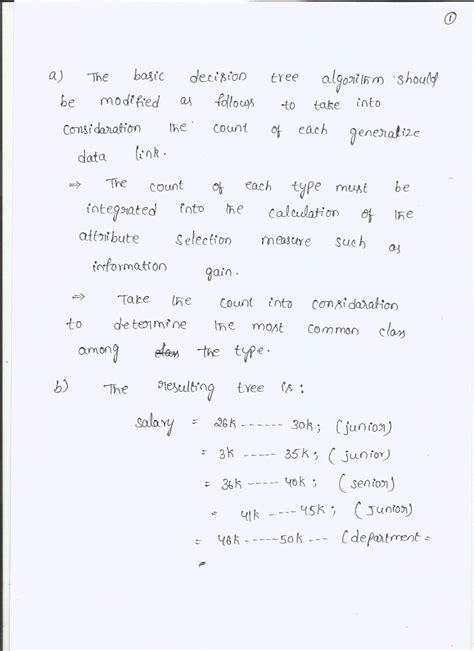 1
a) The basic decision tree algorithm should
be modified as follows to take into
consideration the count of each generalize
data link.
⇒ The count of each type must be
integrated into the calculation of the
attribute selection measure such as
information gain.
⇒ Take the count into consideration
to determine the most common class
among the type.
b) The resulting tree is:
salary = 26k ------ 30k; (junior)
= 3k ----- 35k; (junior)
= 36k ----- 40k; (senior)
= 41k ---- 45k; (Junior)
= 46k -----50k --- (department =
=